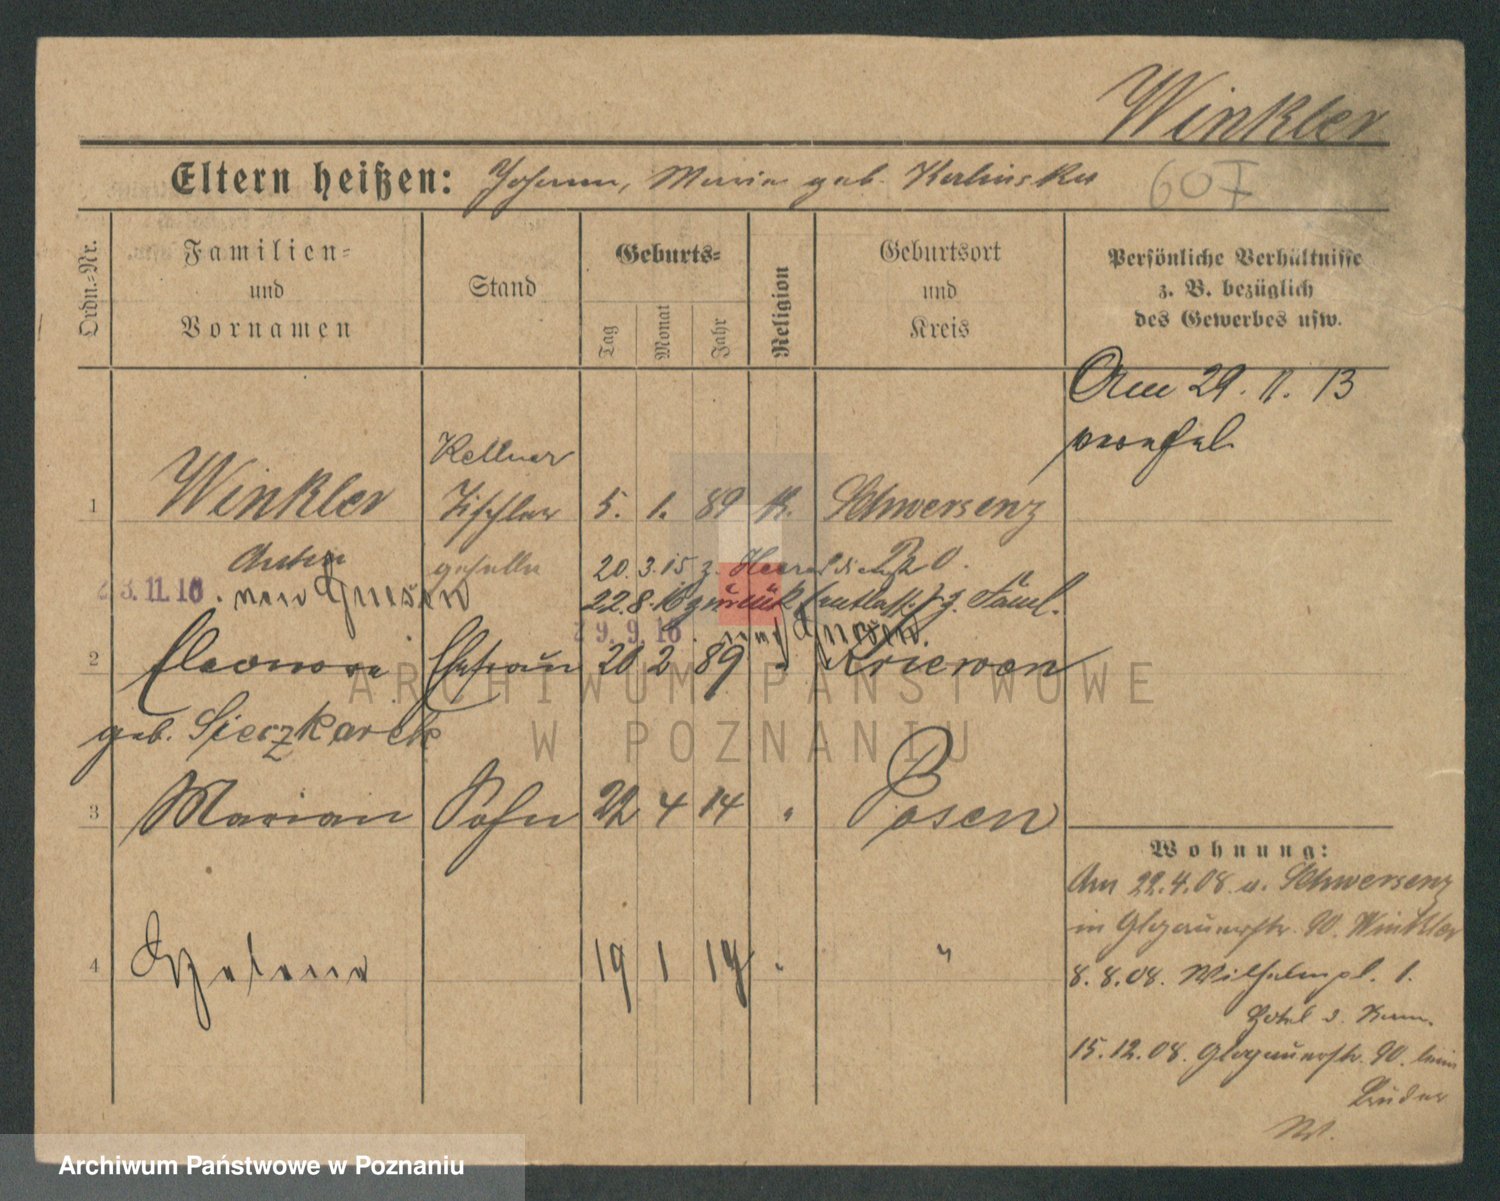 Winkler
Eltern heißen: Johann, Maria geb. Kalinska
607
Ordn.=Nr.
Familien=
und
Vornamen
Stand
Geburts=
Tag
Monat
Jahr
Religion
Geburtsort
und
Kreis
Persönliche Verhältnisse
z. B. bezüglich
des Gewerbes usw.
Am 29. 11. 13
Kellner
1 Winkler Tischler 5. 1. 89 k. Schwersenz
Anton geselle 20. 3. 15 z. Heeresdienst
23.11.16. von Gnesen 22. 8. 16 zurück (entlass.) z. Faml.
29. 9. 16. nach Gnesen.
2 Eleonora Ehefrau 20 2 89 " Kriewen
geb. Sieczkarek
3 Marian Sohn 22 4 14 " Posen
4 Helena 19 1 19 " "
Wohnung:
Am 22.4.08 v. Schwersenz
in Glogauerstr. 90. Winkler
8. 8. 08. Wilhelmpl. 1.
Hotel d. Rom.
15. 12. 08. Glogauerstr. 90. beim
Bruder
ARCHIWUM PAŃSTWOWE
W POZNANIU
Archiwum Państwowe w Poznaniu